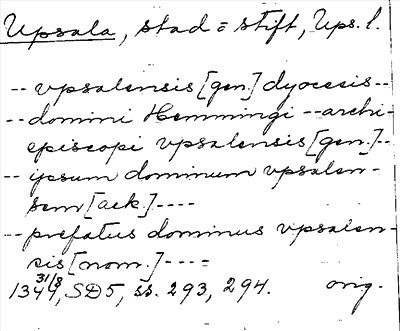 Upsala, stad = stift, Ups. l.
-- vpsalensis [gen.] dyocesis --
-- domini Hemmingi -- archi-
episcopi vpsalensis [gen.] --
-- ipsum dominum vpsalen-
sem [ack.] ----
-- prefatus dominus vpsalen-
sis [nom.] ----
1349 31/8, SD5, ss. 293, 294. orig.